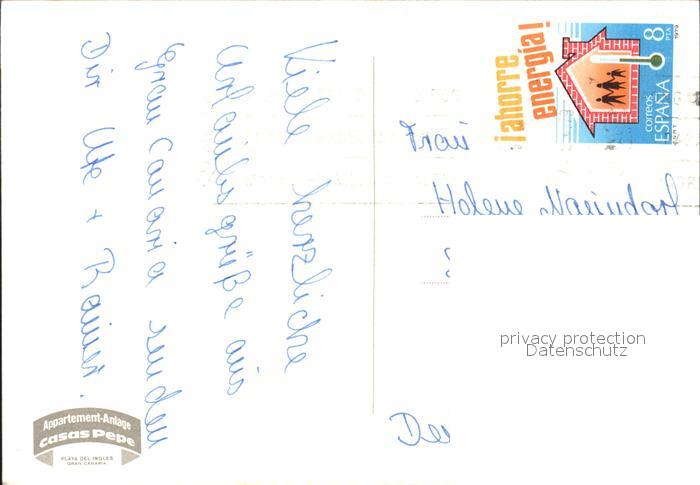 Viele herzliche
Urlaubsgrüße aus
Gran Canaria senden
Dir Ute + Rainer.
¡ahorre
energía!
8
PTA
1979
correos
ESPAÑA
Frau
Helene
privacy protection
Datenschutz
Appartement-Anlage
casas Pepe
PLAYA DEL INGLES
GRAN CANARIA